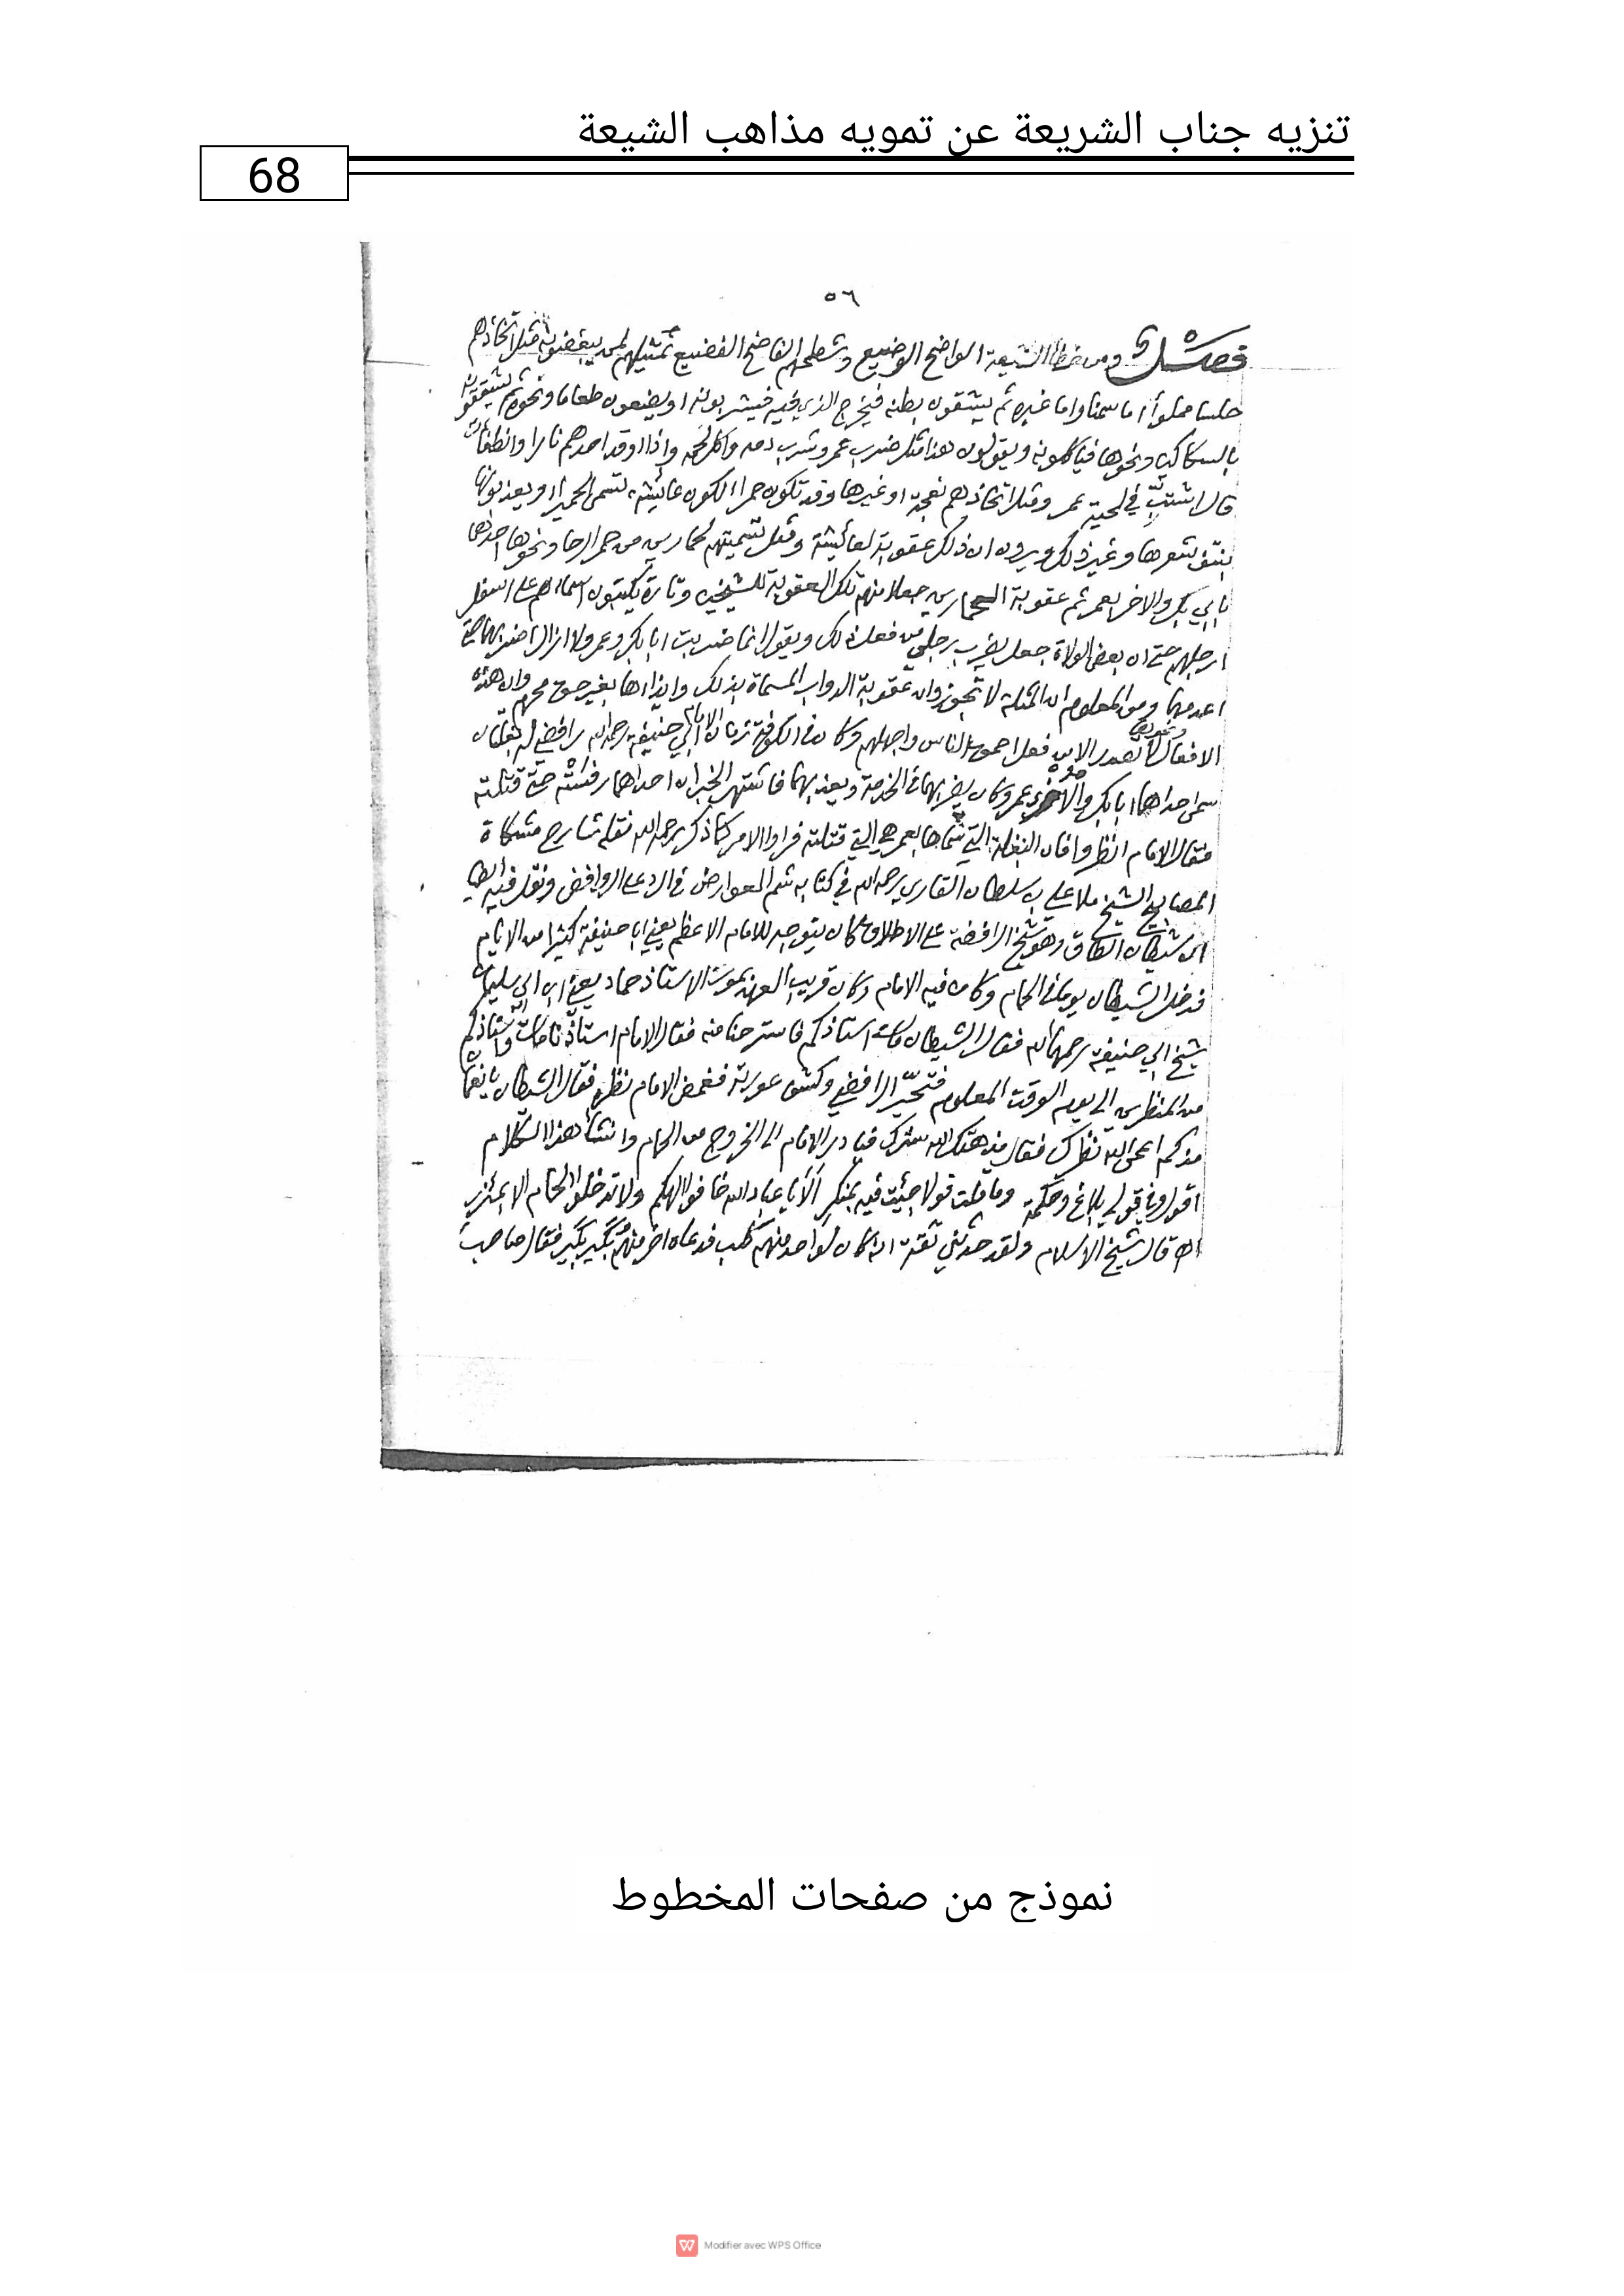 تنزيه جناب الشريعة عن تمويه مذاهب الشيعة
68
٥٦
فصل ومن خطأ الشيعة الواضح الوضيع وشطحهم الفاضح الفضيع تمثيلهم لمن يبغضونه مثل اتخاذهم
حلسا مملوأ اما سمنا واما غيره ثم يشقون بطنه فيخرج الذي فيه فيشربونه او يضعون طعاما ونحوه ثم
بالسكاكين ونحوها فياكلونه ويقولون هذا مثل ضرب عمر وشرب دمه واكل لحمه واذا اوقد احدهم نارا وانطفات
قال اشتب في لحية عمر ومثل اتخاذهم نعجة او غيرها وقد تكون حمرا لكون عائشة تسمى الحميرا ويعذبونها
بنتف شعرها وغير ذلك ويرون ان ذلك عقوبة لعائشة ومثل تسميتهم لحمارين من حمر الرحا ونحوها احدهما
بابي بكر والاخر بعمر ثم عقوبة الحمارين جعلا منهم تلك العقوبة للشيخين وتارة يكتبون اسماهم على اسفل
ارجلهم حتى ان بعض الولاة جعل يضرب رجلي من فعل ذلك ويقول انما ضربت ابا بكر وعمر ولا ازال اضربهما حتى
اعدمهما ومن المعلوم ان المثلة لا تجوز وان عقوبة الدواب المسماة بذلك وايذاءها بغير حق محرم وان هذه
الافعال ونحوها لا تصدر الا من فعل احمق الناس واجهلهم وكان في الكوفة زمان الامام ابي حنيفة رحمه الله رافضي له بغلتان
سمى احداهما ابا بكر والاخرى عمر وكان يضربهما في الخدمة ويعذبهما فاشتهر الخبر ان احداهما رفسته حتى قتلته
فقال الامام انظروا فان البغلة التي سماها بعمر هي التي قتلته فراوا الامر كما ذكر رحمه الله نقله شارح مشكاة
المصابيح الشيخ ملا علي بن سلطان القاري رحمه الله في كتابه شم العوارض في الرد على الروافض ونقل فيه ايضا
ان شيطان الطاق وهو شيخ الرافضة على الاطلاق كان يتوجه للامام الاعظم يعني ابا حنيفة كثيرا من الايام
فدخل الشيطان يوما في الحمام وكان فيه الامام وكان قريب العهد بموت الاستاذ حماد يعني ابن ابي سليمان
شيخ ابي حنيفة رحمهما الله فقال الشيطان مات استاذكم فاسترحنا منه فقال الامام استاذنا مات واستاذكم
من المنظرين الى يوم الوقت المعلوم فتحير الرافضي وكشف عورته فغمض الامام نظره فقال الشيطان يا نعمان
مذكم اعمى الله نظرك فقال مذ هتك الله سترك فبادر الامام الى الخروج من الحمام وانشأ هذا الكلام
اقول وفي قولي بلاغ وحكمة وما قلت قولا جئت فيه بمنكر ألا يا عباد الله خافوا الهكم ولا تدخلوا الحمام الا بمئزر
اهـ قال شيخ الاسلام ولقد حدثني ثقة انه كان لواحد منهم كلب فدعاه اخر منهم بكير بكير فقال صاحب
نموذج من صفحات المخطوط
Modifier avec WPS Office